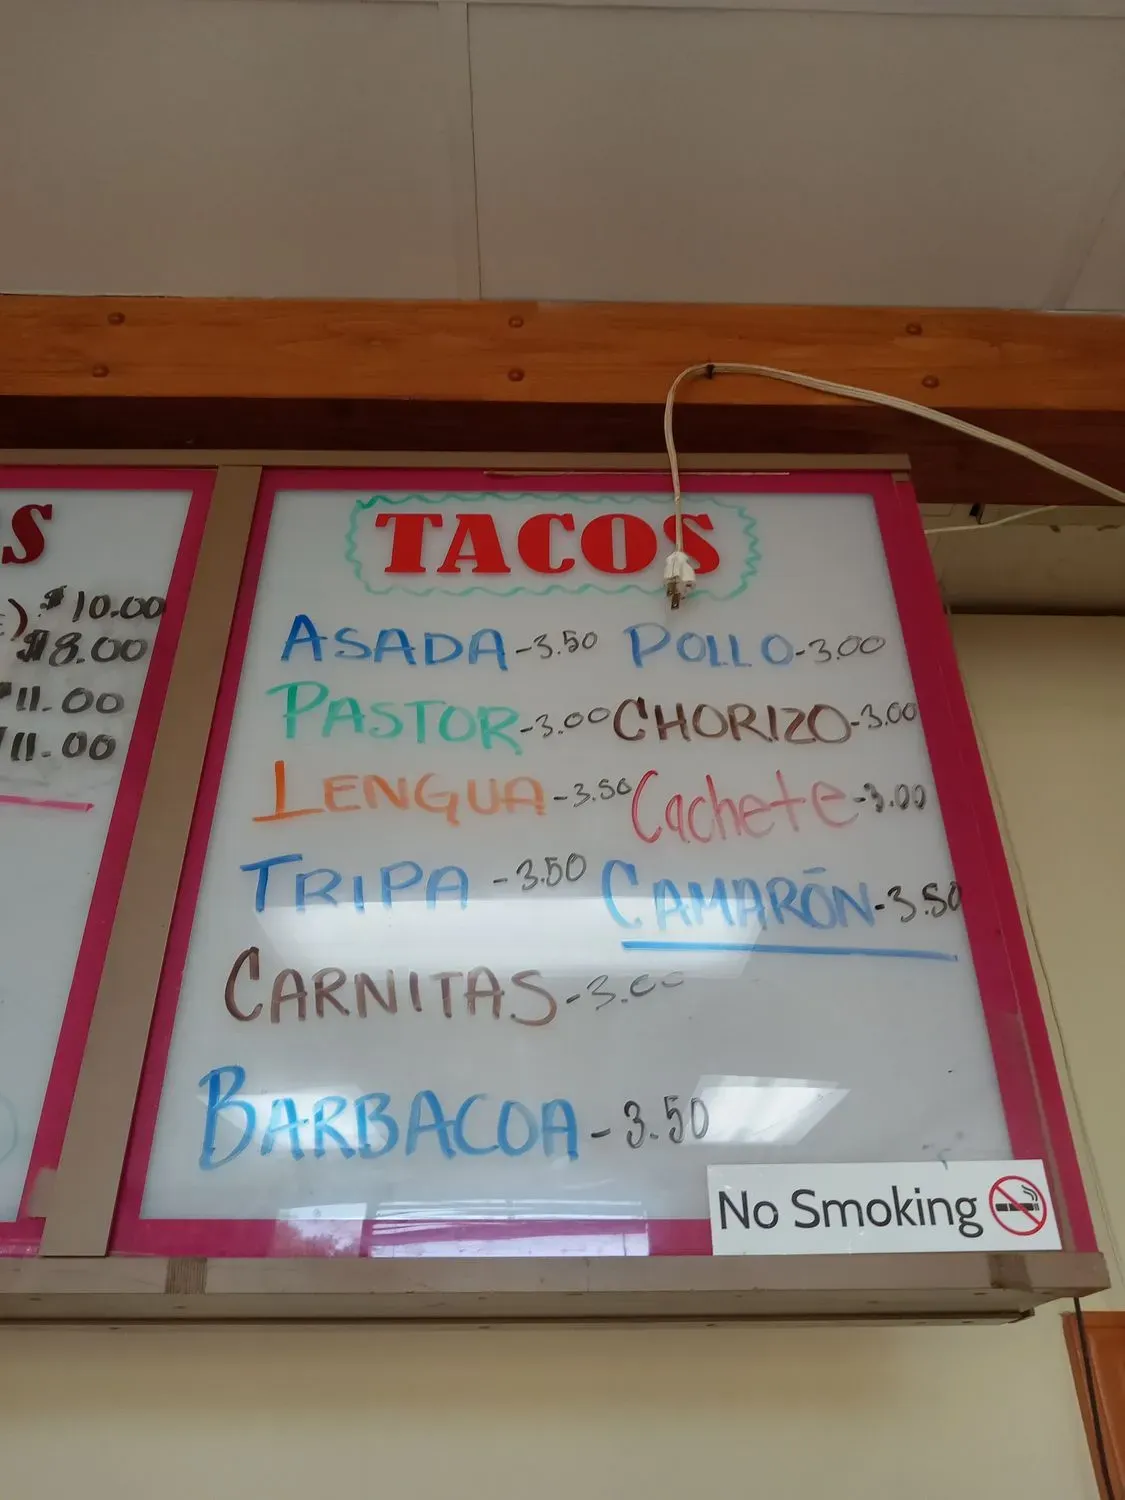 S
) $10.00
$8.00
$11.00
$11.00
TACOS
ASADA-3.50 POLLO-3.00
PASTOR-3.00 CHORIZO-3.00
LENGUA-3.50 Cachete-3.00
TRIPA -3.50 CAMARÓN-3.50
CARNITAS-3.00
BARBACOA-3.50
No Smoking